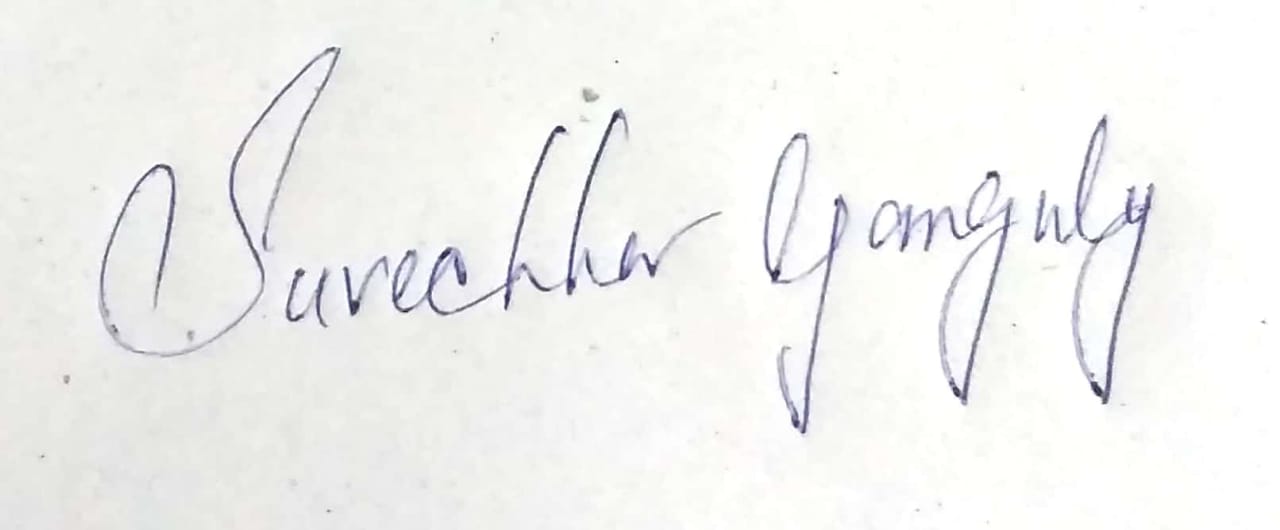 Surechha Ganguly